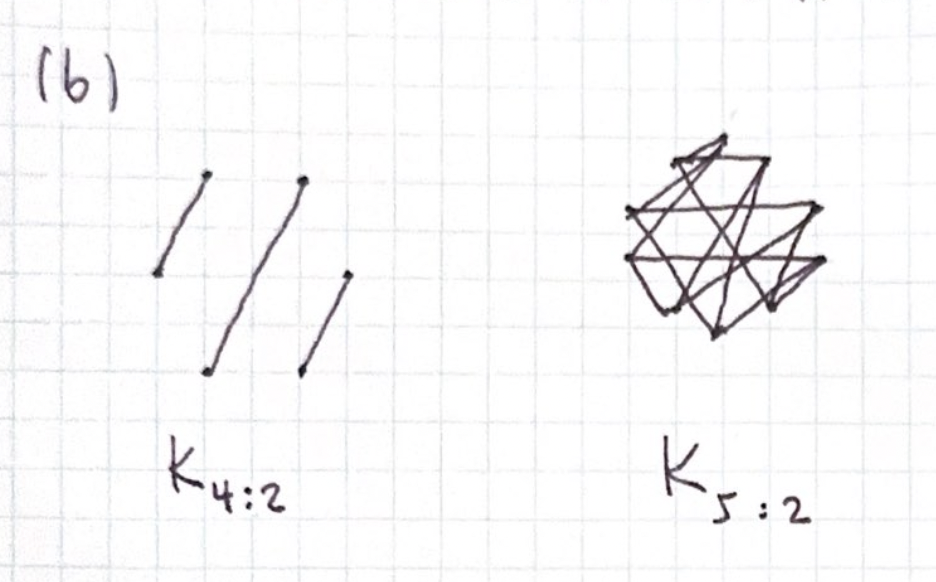 (b)
K₄:₂ K₅:₂